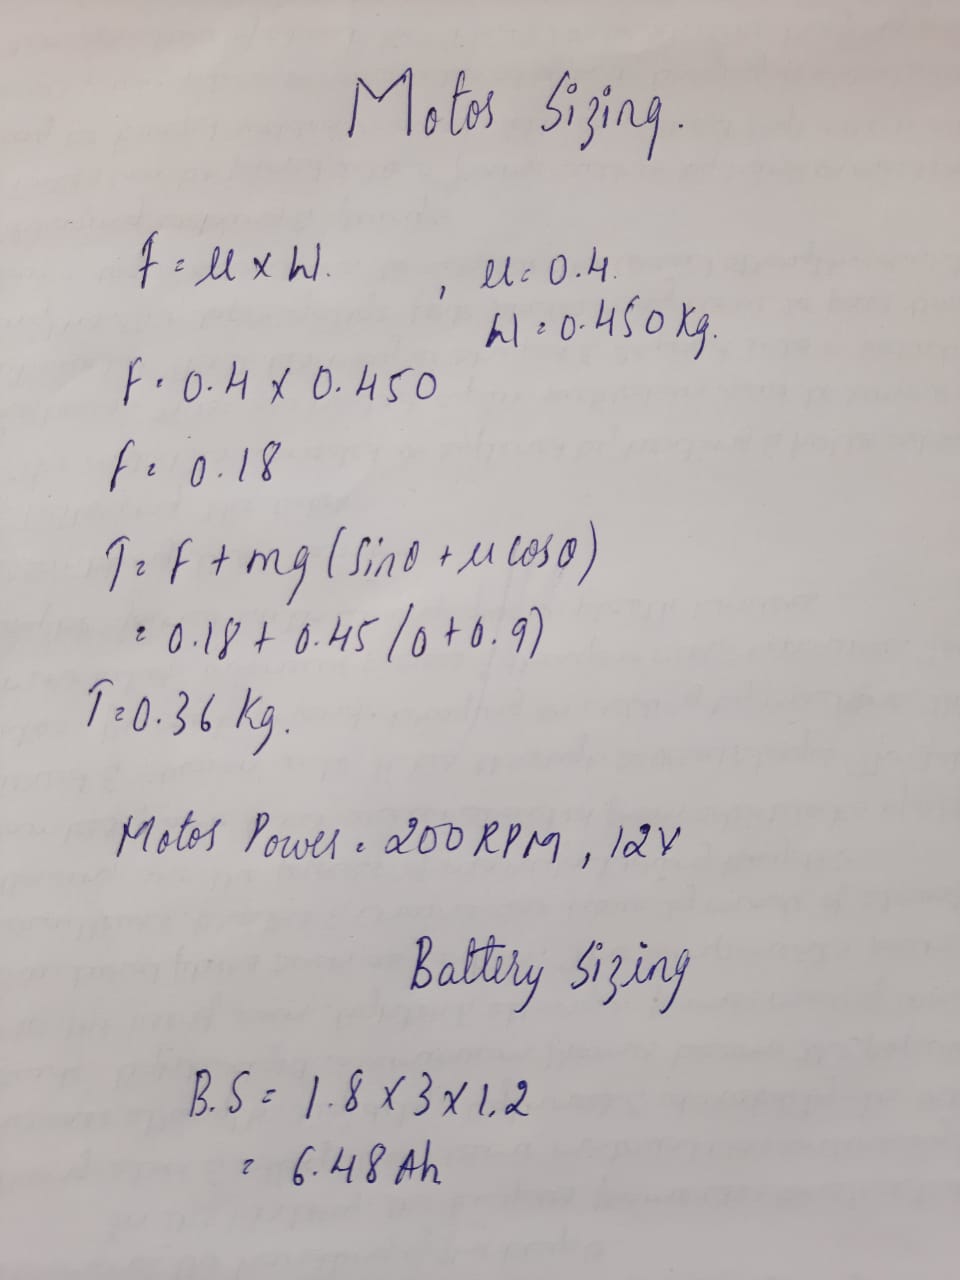 Motor Sizing.
F = μ × W. , μ = 0.4.
W = 0.450 Kg.
F = 0.4 × 0.450
F = 0.18
T = F + mg (sinθ + μ cosθ)
= 0.18 + 0.45 (0 + 0.9)
T = 0.36 Kg.
Motor Power = 200 RPM, 12V
Battery Sizing
B.S = 1.8 × 3 × 1.2
= 6.48 Ah